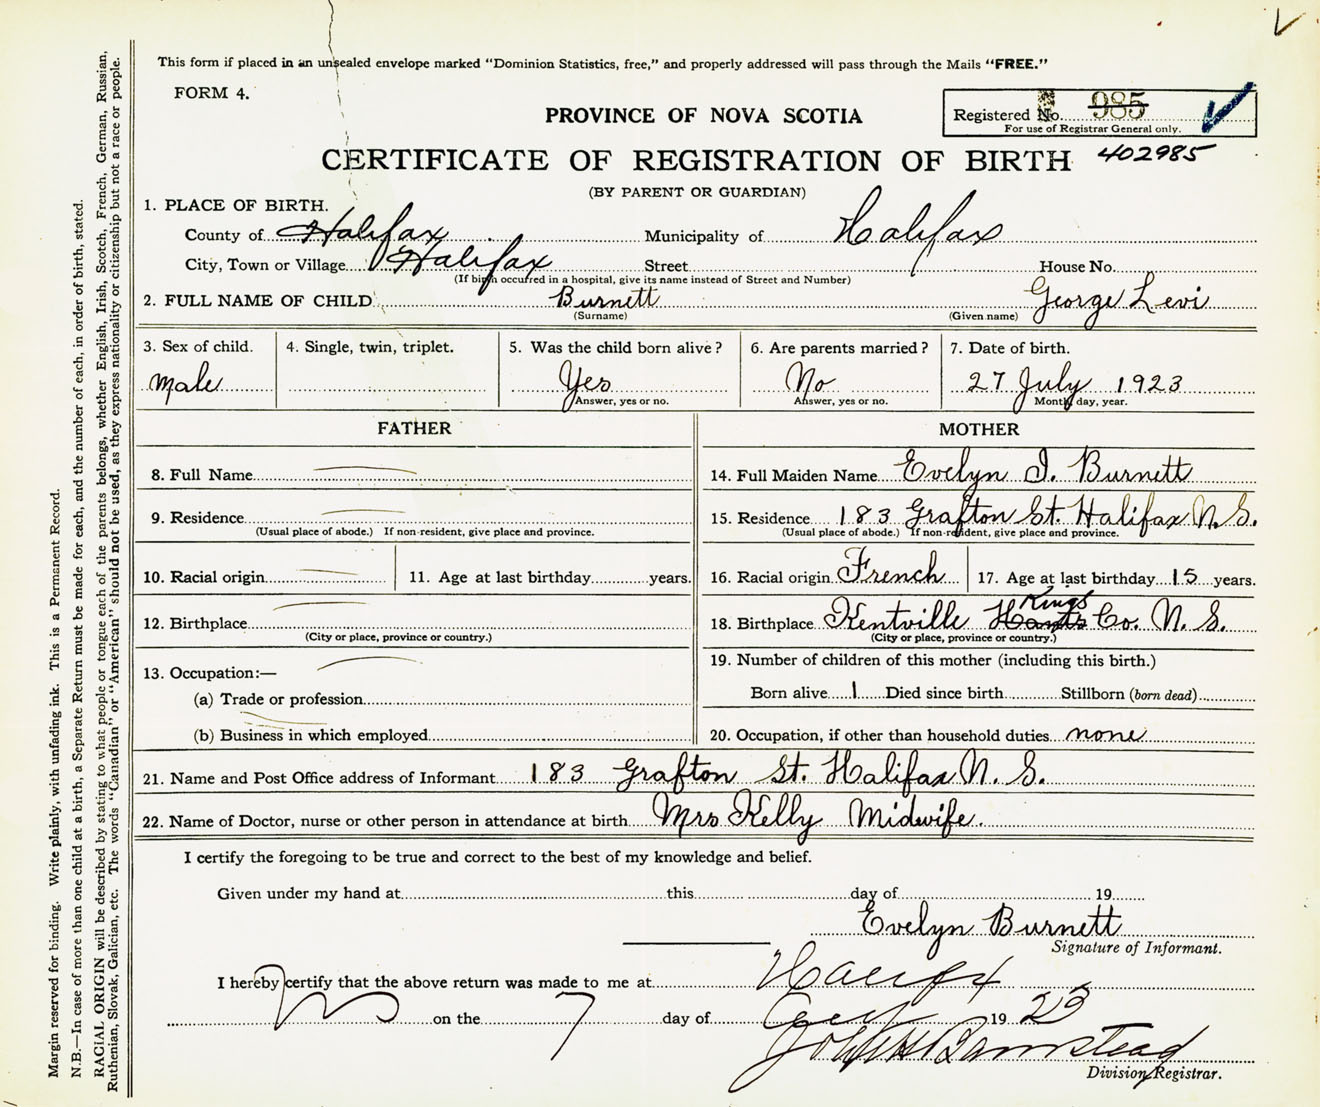 This form if placed in an unsealed envelope marked "Dominion Statistics, free," and properly addressed will pass through the Mails "FREE."
FORM 4.
PROVINCE OF NOVA SCOTIA
Registered No. 985
For use of Registrar General only.
402985
CERTIFICATE OF REGISTRATION OF BIRTH
(BY PARENT OR GUARDIAN)
1. PLACE OF BIRTH.
County of Halifax Municipality of Halifax
City, Town or Village Halifax Street House No.
(If birth occurred in a hospital, give its name instead of Street and Number)
2. FULL NAME OF CHILD Burnett George Levi
(Surname) (Given name)
3. Sex of child. 4. Single, twin, triplet. 5. Was the child born alive? 6. Are parents married? 7. Date of birth.
male Yes No 27 July 1923
Answer, yes or no. Answer, yes or no. Month, day, year.
FATHER MOTHER
8. Full Name 14. Full Maiden Name Evelyn I. Burnett
9. Residence 15. Residence 183 Grafton St. Halifax N.S.
(Usual place of abode.) If non-resident, give place and province. (Usual place of abode.) If non-resident, give place and province.
10. Racial origin 11. Age at last birthday years. 16. Racial origin French 17. Age at last birthday 15 years.
Kings
12. Birthplace 18. Birthplace Kentville Hants Co. N. S.
(City or place, province or country.) (City or place, province or country.)
13. Occupation:—
(a) Trade or profession
(b) Business in which employed
19. Number of children of this mother (including this birth.)
Born alive 1 Died since birth Stillborn (born dead)
20. Occupation, if other than household duties none
21. Name and Post Office address of Informant 183 Grafton St. Halifax N. S.
22. Name of Doctor, nurse or other person in attendance at birth Mrs Kelly Midwife.
I certify the foregoing to be true and correct to the best of my knowledge and belief.
Given under my hand at this day of 19
Evelyn Burnett
Signature of Informant.
I hereby certify that the above return was made to me at Halifax
on the 7 day of 19 23
Division Registrar.
Margin reserved for binding. Write plainly, with unfading ink. This is a Permanent Record.
N.B.—In case of more than one child at a birth, a Separate Return must be made for each, and the number of each, in order of birth, stated.
RACIAL ORIGIN will be described by stating to what people or tongue each of the parents belongs, whether English, Irish, Scotch, French, German, Russian,
Ruthenian, Slovak, Galician, etc. The words "Canadian" or "American" should not be used, as they express nationality or citizenship but not a race or people.